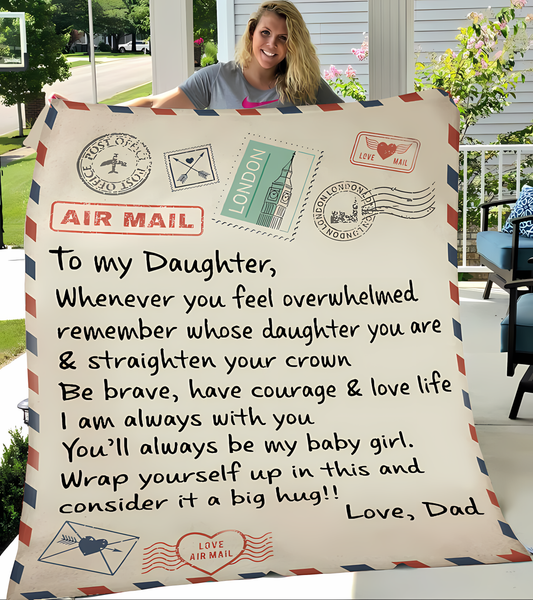 POST OFFICE
POST OFFICE
LONDON
LOVE MAIL
LONDON LONDON LONDON
LONDON
AIR MAIL
To my Daughter,
Whenever you feel overwhelmed
remember whose daughter you are
& straighten your crown
Be brave, have courage & love life
I am always with you
You'll always be my baby girl.
Wrap yourself up in this and
consider it a big hug!!
Love, Dad
LOVE
AIR MAIL